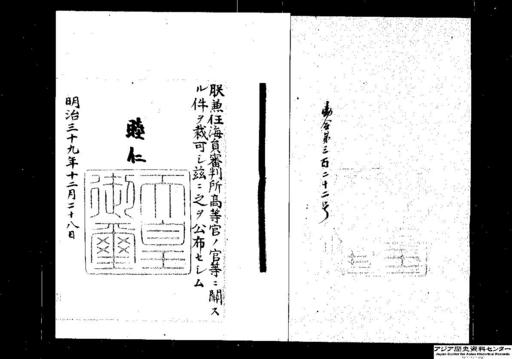 勅令第三百二十二号
朕兼任海員審判所高等官ノ官等ニ關ス
ル件ヲ裁可シ茲ニ之ヲ公布セシム
睦仁
天皇御璽
明治三十九年十二月二十八日
アジア歴史資料センター
Japan Center for Asian Historical Records